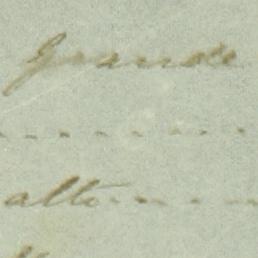 grande
alto